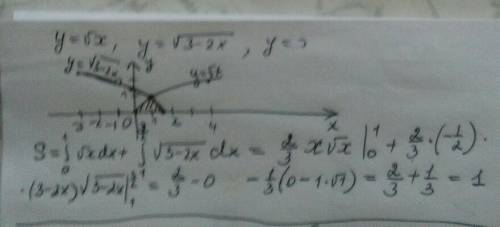 y=√x, y=√(3-2x), y=
y=√(3-2x) y y=√x
1
-3 -2 -1 0 1 2 4 x
S=∫₀¹ √x dx + ∫ √(3-2x) dx = 2/3 x√x |₀¹ + 2/3·(-1/2)·
·(3-2x)√(3-2x) | = 2/3 - 0 - 1/3(0-1·√1) = 2/3 + 1/3 = 1